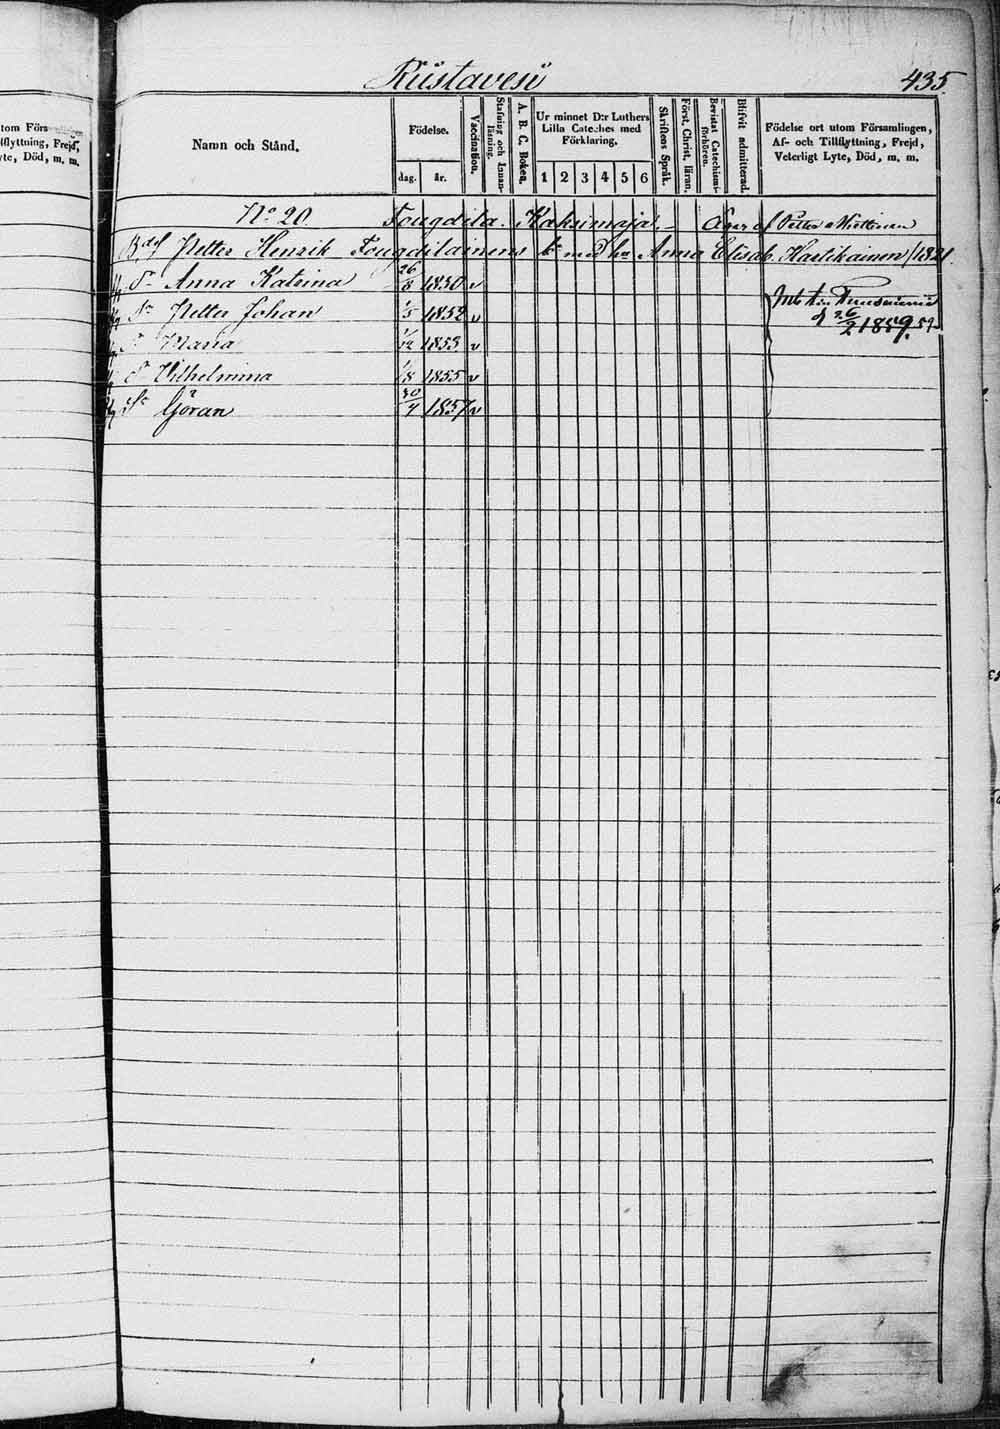 Rüstavesi
435
tom Förs
lflyttning, Frejd,
yte, Död, m. m.
Namn och Stånd.
Födelse.
dag.
år.
Vaccination.
Stafning och Innan-läsning.
A. B. C. Boken.
Ur minnet D:r Luthers
Lilla Cateches med
Förklaring.
1 2 3 4 5 6
Skriftens Språk.
Först. Christ. läran.
Bevistat Catechismi-förhören.
Blifvit admitterad.
Födelse ort utom Församlingen,
Af- och Tillflyttning, Frejd,
Veterligt Lyte, Död, m. m.
No 20. Tougdila. Kaksimaja Petter
Petter Henrik Tougdilainens med Anna Elisab. Hartikainen /1821
Anna Katrina 26/8 1850 v
Petter Johan 1/5 1852 v
26/2 1859.
Maria 1/12 1853 v
Vilhelmina 1/8 1855 v
Göran 30/4 1857 v